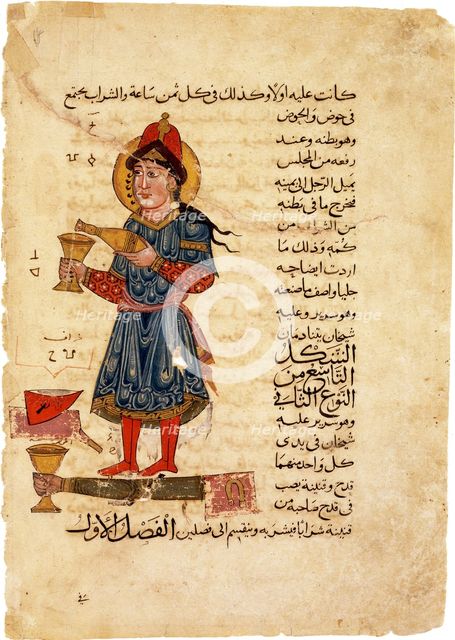 كانت عليه اولا وكذلك في كل ثمن ساعة والشراب يجتمع
في حوض والحوض
وهو بطنه وعند
رفعه من المجلس
يميل الرجل الى يمينه
فخرج ما في بطنه
من الشراب من
كمه وذلك ما
اردت ايضاحه
جليا واصف ما صنعته
وهو سرير وعليه
شيخان يتنادمان
الشكل
التاسع من
النوع الثاني
وهو سرير عليه
شيخان في يدي
كل واحد منهما
قدح وقنينة يصب
في قدح صاحبه من
قنينة شرابا فيشربه وينقسم الى فصلين الفصل الاول
Heritage
Heritage
Heritage
Heritage
Heritage
Heritage